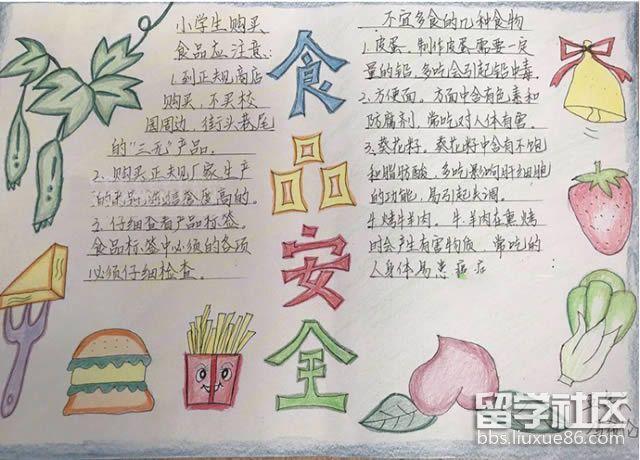 小学生购买
食品应注意:
1.到正规商店
购买,不买校
园周边,街头巷尾
的"三无"产品。
2.购买正规厂家生产
的 品 信誉度高的。
3.仔细查看产品标签。
食品标签中必须的各项
必须仔细检查。
食品安全
不宜多食的几种食物
1.皮蛋。制作皮蛋需要一定
量的铅,多吃会引起铅中毒
2.方便面。方面中含有色素和
防腐剂,常吃对人体有害。
3.葵花籽。葵花籽中含有不饱
和脂肪酸,多吃影响肝细胞
的功能,易引起失调。
4.烤牛羊肉。牛羊肉在熏烤
时会产生有害物质,常吃的
人身体易患癌症
留学社区
bbs.liuxue86.com